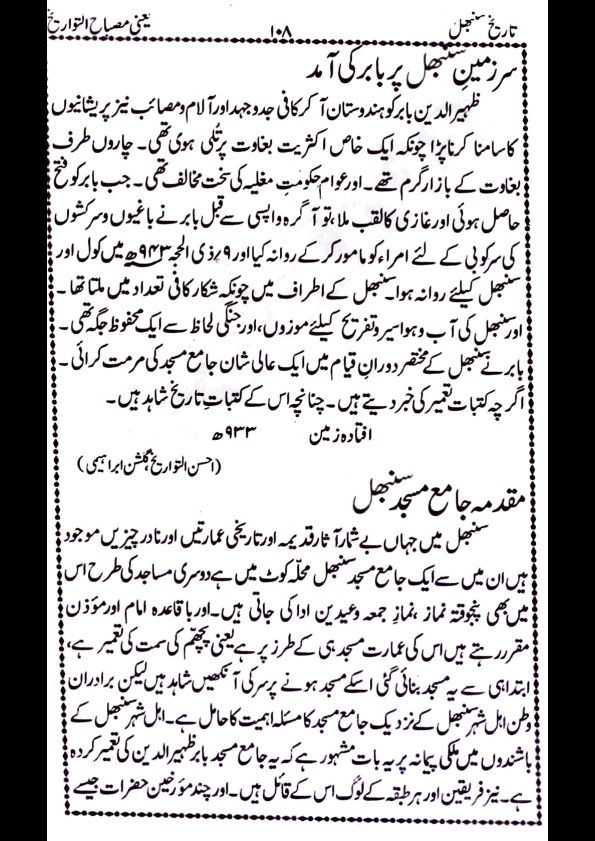 تاریخ سنبھل ۱۰۸ یعنی مصباح التواریخ
سرزمینِ سنبھل پر بابر کی آمد
ظہیر الدین بابر کو ہندوستان آ کر کافی جدوجہد اور آلام و مصائب نیز پریشانیوں
کا سامنا کرنا پڑا چونکہ ایک خاص اکثریت بغاوت پر تلی ہوی تھی۔ چاروں طرف
بغاوت کے بازار گرم تھے۔ اور عوام حکومتِ مغلیہ کی سخت مخالف تھی۔ جب بابر کو فتح
حاصل ہوئی اور غازی کا لقب ملا، تو آ گرہ واپسی سے قبل بابر نے باغیوں و سرکشوں
کی سرکوبی کے لئے امراء کو مامور کر کے روانہ کیا اور ۹؍ ذی الحجہ ۹۴۳ھ میں کول اور
سنبھل کیلئے روانہ ہوا۔ سنبھل کے اطراف میں چونکہ شکار کافی تعداد میں ملتا تھا ۔
اور سنبھل کی آب و ہوا سیر و تفریح کیلئے موزوں، اور جنگی لحاظ سے ایک محفوظ جگہ تھی۔
بابر نے سنبھل کے مختصر دورانِ قیام میں ایک عالی شان جامع مسجد کی مرمت کرائی ۔
اگر چہ کتبات تعمیر کی خبر دیتے ہیں۔ چنانچہ اس کے کتباتِ تاریخ شاہد ہیں۔
افتادہ زمین ۹۳۳ھ
(احسن التواریخ گلشن ابراہیمی)
مقدمہ جامع مسجد سنبھل
سنبھل میں جہاں بے شمار آثار قدیمہ اور تاریخی عمارتیں اور نادر چیزیں موجود
ہیں ان میں سے ایک جامع مسجد سنبھل محلّہ کوٹ میں ہے دوسری مساجد کی طرح اس
میں بھی پنجوقتہ نماز ،نمازِ جمعہ و عیدین ادا کی جاتی ہیں۔ اور باقاعدہ امام اور مؤذن
مقرر رہتے ہیں اس کی عمارت مسجد ہی کے طرز پر ہے یعنی پچھّم کی سمت کی تعمیر ہے،
ابتدا ہی سے یہ مسجد بنائی گئی اسکے مسجد ہونے پر سر کی آنکھیں شاہد ہیں لیکن برادران
وطن اہل شہر سنبھل کے نزدیک جامع مسجد کا مسئلہ اہمیت کا حامل ہے۔ اہل شہر سنبھل کے
باشندوں میں ملکی پیمانہ پر یہ بات مشہور ہے کہ یہ جامع مسجد بابر ظہیر الدین کی تعمیر کردہ
ہے۔ نیز فریقین اور ہر طبقہ کے لوگ اس کے قائل ہیں۔ اور چند مؤرخین حضرات جیسے